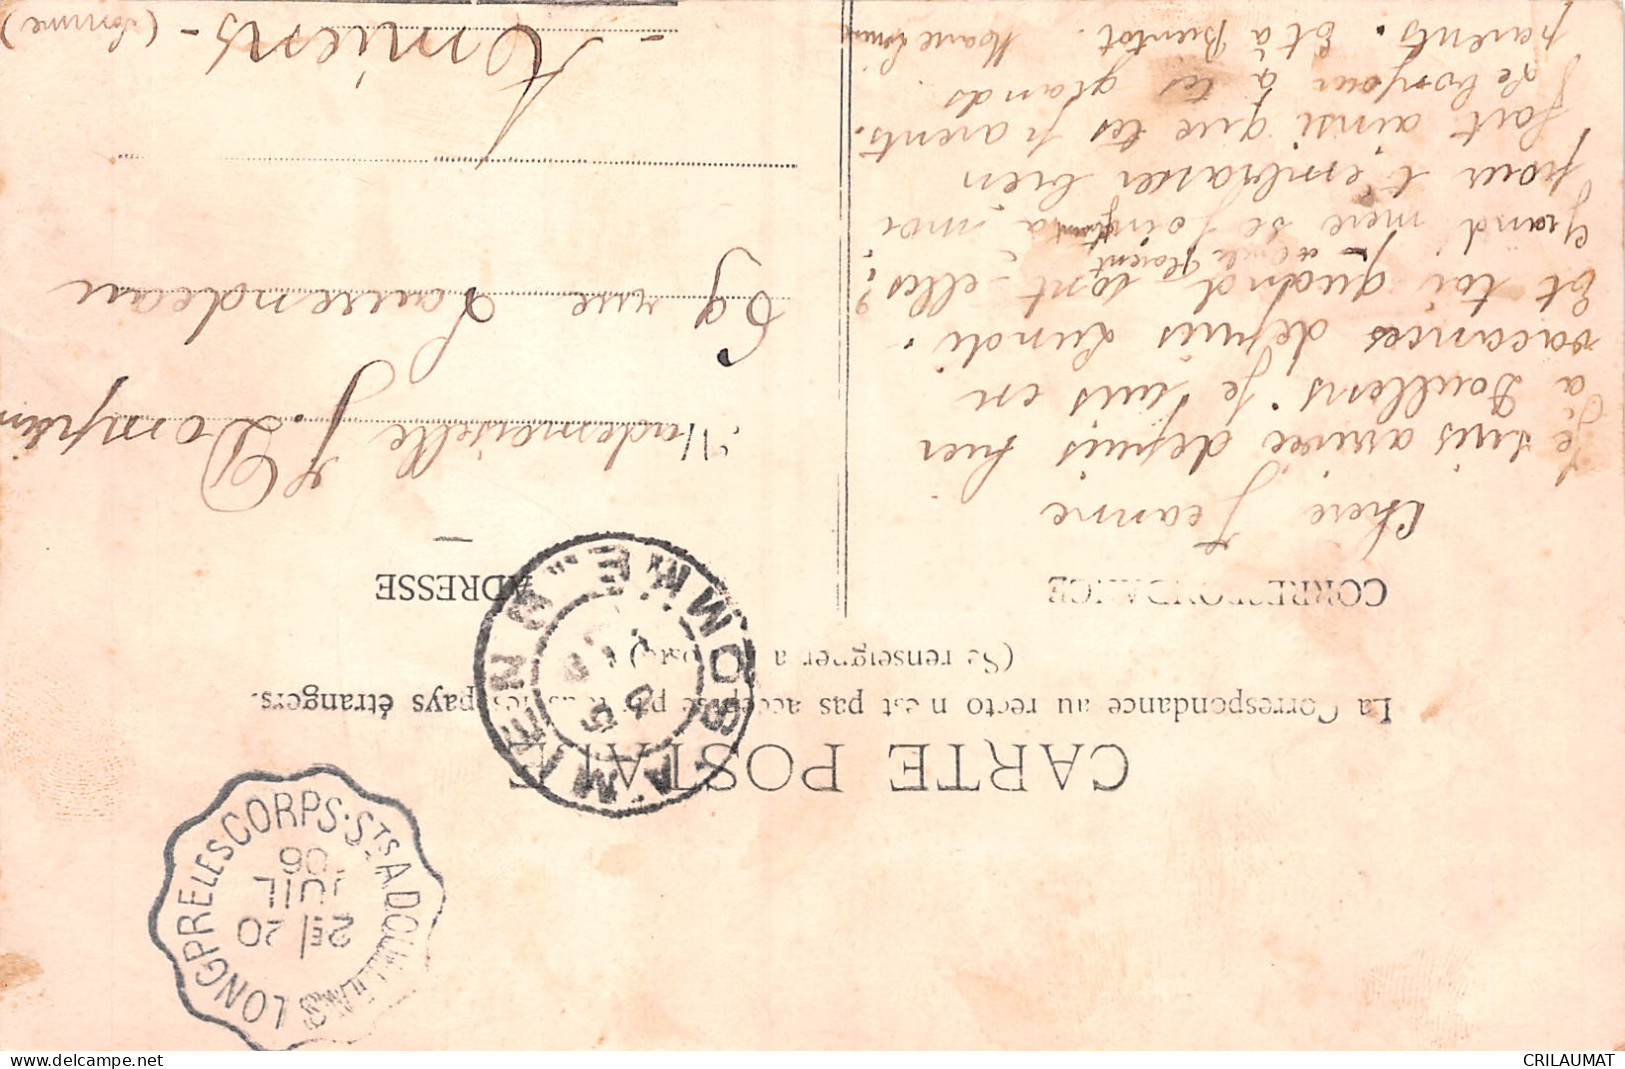 CARTE POSTALE
La Correspondance au recto n'est pas acceptée par tous les pays étrangers.
(Se renseigner à la Poste)
CORRESPONDANCE
ADRESSE
Chère Jeanne
Je suis arrivée depuis hier
à Doullens. Je suis en
vacances depuis Lundi.
Et toi quand sont-elles?
Grand'mère se joint à moi
pour t'embrasser bien
fort ainsi que tes parents.
Le bonjour à tes grands
parents. Et à Bientôt.
Mademoiselle J. Dompierre
69 rue Laurendeau
- Amiens - (Somme)
AMIENS GARE SOMME
LONGPRE LES CORPS-STS A DOULLENS
2E 20
JUIL
06
www.delcampe.net
CRILAUMAT